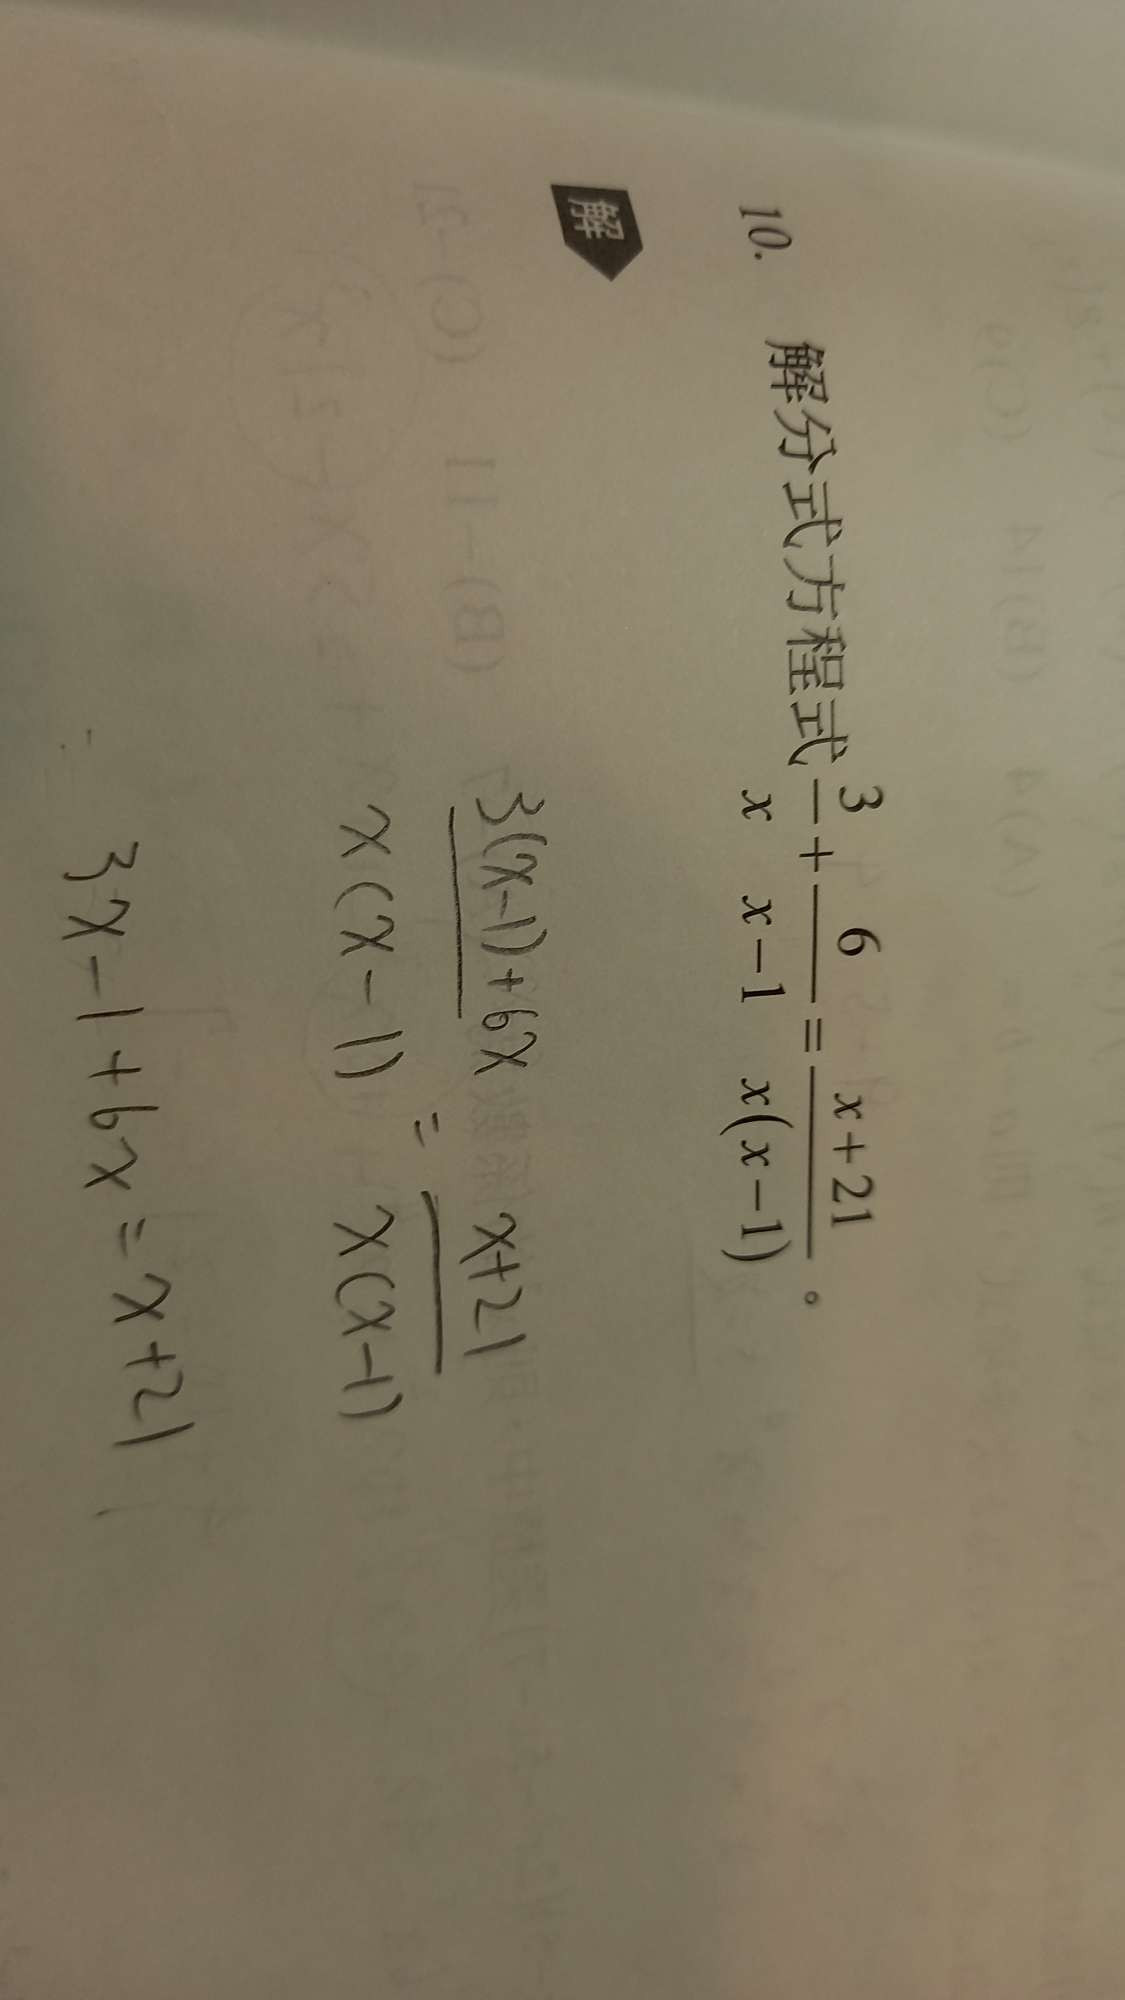 10. 解分式方程式 3/x + 6/(x-1) = (x+21)/(x(x-1))。
解
3(x-1)+6x / x(x-1) = x+21 / x(x-1)
3x-1+6x=x+21